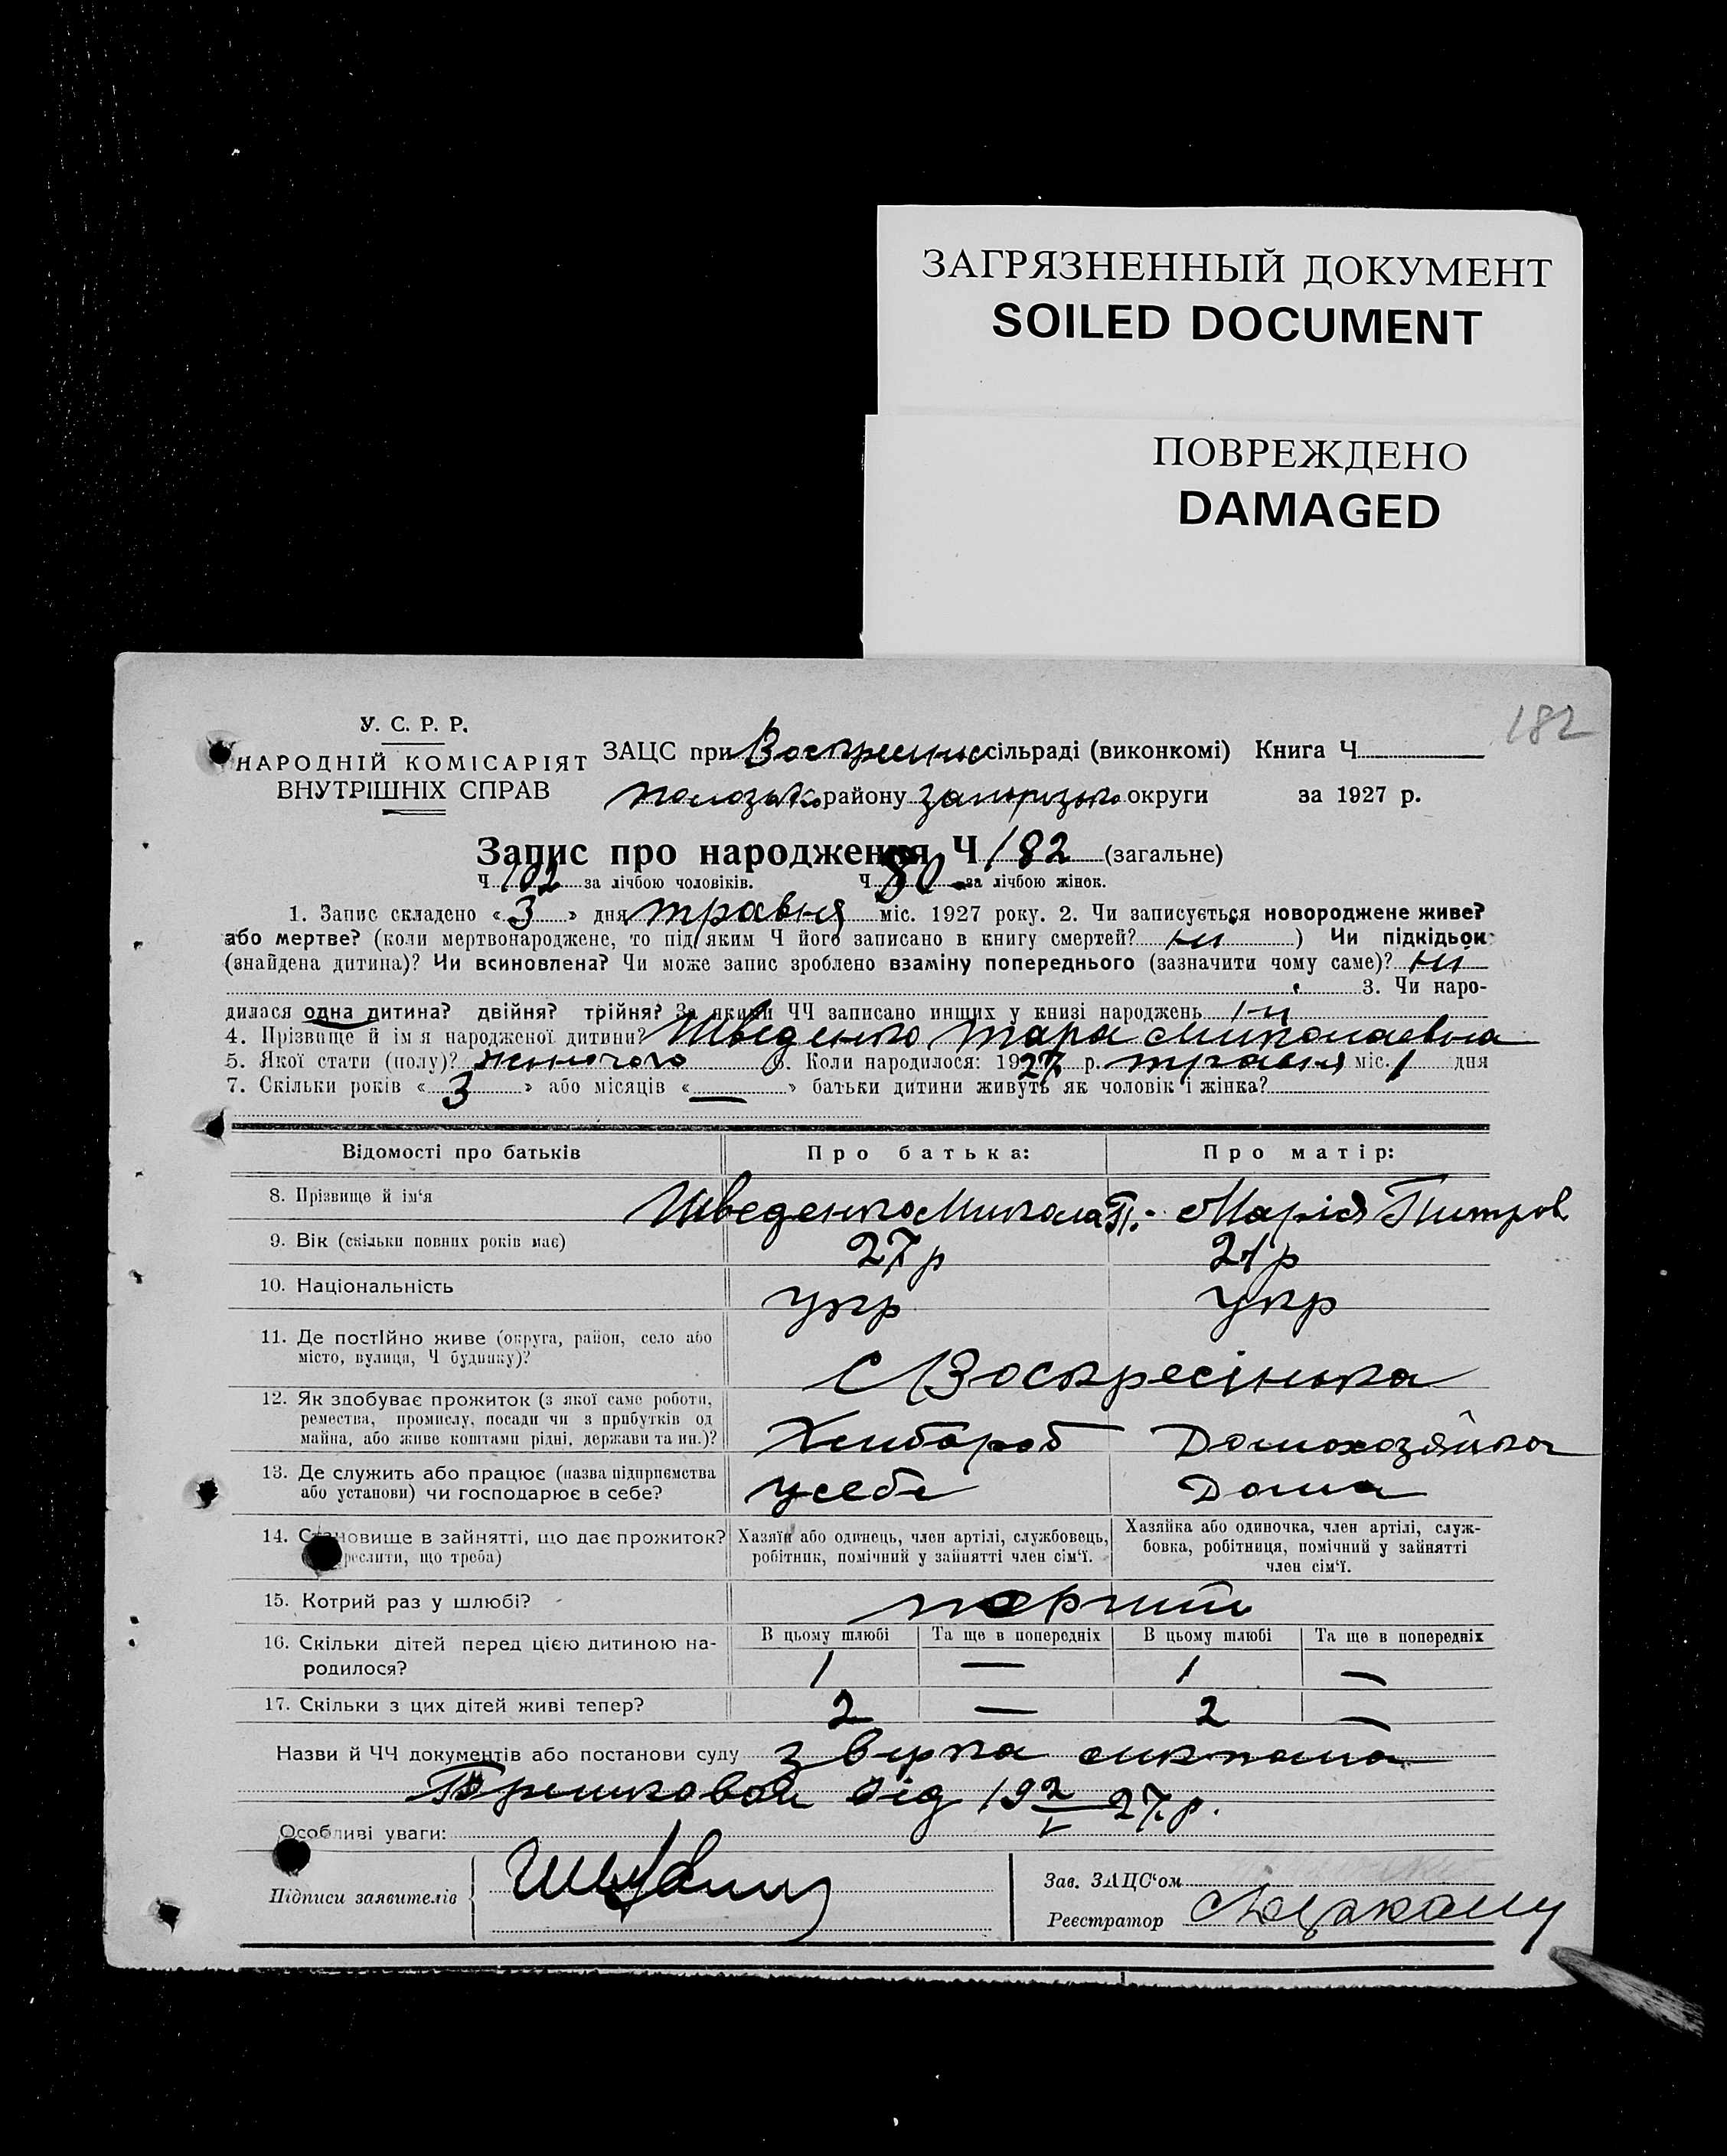 ЗАГРЯЗНЕННЫЙ ДОКУМЕНТ
SOILED DOCUMENT
ПОВРЕЖДЕНО
DAMAGED
182
У. С. Р. Р.
НАРОДНІЙ КОМІСАРІЯТ
ВНУТРІШНІХ СПРАВ
ЗАЦС при сільраді (виконкомі) Книга Ч
району округи за 1927 р.
Запис про народження Ч 182 (загальне)
Ч 102 за лічбою чоловіків. Ч 80 за лічбою жінок.
1. Запис складено « 3 » дня травня міс. 1927 року. 2. Чи записується новороджене живе?
або мертве? (коли мертвонароджене, то під яким Ч його записано в книгу смертей? ні ) Чи підкідьок
(знайдена дитина)? Чи всиновлена? Чи може запис зроблено взаміну попереднього (зазначити чому саме)? ні
3. Чи наро-
дилася одна дитина? двійня? трійня? За якими ЧЧ записано инших у книзі народжень ні
4. Прізвище й ім я народженої дитини? Шведенко Тара Миколаевна
5. Якої стати (полу)? жіночого 6. Коли народилося: 1927 р. травня міс. 1 дня
7. Скільки років « 3 » або місяців « — » батьки дитини живуть як чоловік і жінка?
Відомості про батьків Про батька: Про матір:
8. Прізвище й ім'я Шведенко Микола П. Марія Питров
9. Вік (скільки повних років має) 27 р 21 р
10. Національність укр укр
11. Де постійно живе (округа, район, село або
місто, вулиця, Ч будинку)?
С Воскресінька
12. Як здобуває прожиток (з якої саме роботи,
ремества, промислу, посади чи з прибутків од
майна, або живе коштами рідні, держави та ин.)?
Хлибороб Домохозяйка
13. Де служить або працює (назва підприємства
або установи) чи господарює в себе?
у себе Дома
14. Становище в зайнятті, що дає прожиток? Хазяїн або одинець, член артілі, службовець, Хазяйка або одиночка, член артілі, служ-
що треба) робітник, помічний у зайнятті член сім'ї. бовка, робітниця, помічний у зайнятті
член сім'ї.
15. Котрий раз у шлюбі?
16. Скільки дітей перед цією дитиною на- В цьому шлюбі Та ще в попередніх В цьому шлюбі Та ще в попередніх
родилося? 1 — 1 —
17. Скільки з цих дітей живі тепер? 2 — 2 —
Назви й ЧЧ документів або постанови суду
від 19 2/V 27 р.
Особливі уваги:
Підписи заявителів
Зав. ЗАЦС'ом
Реєстратор